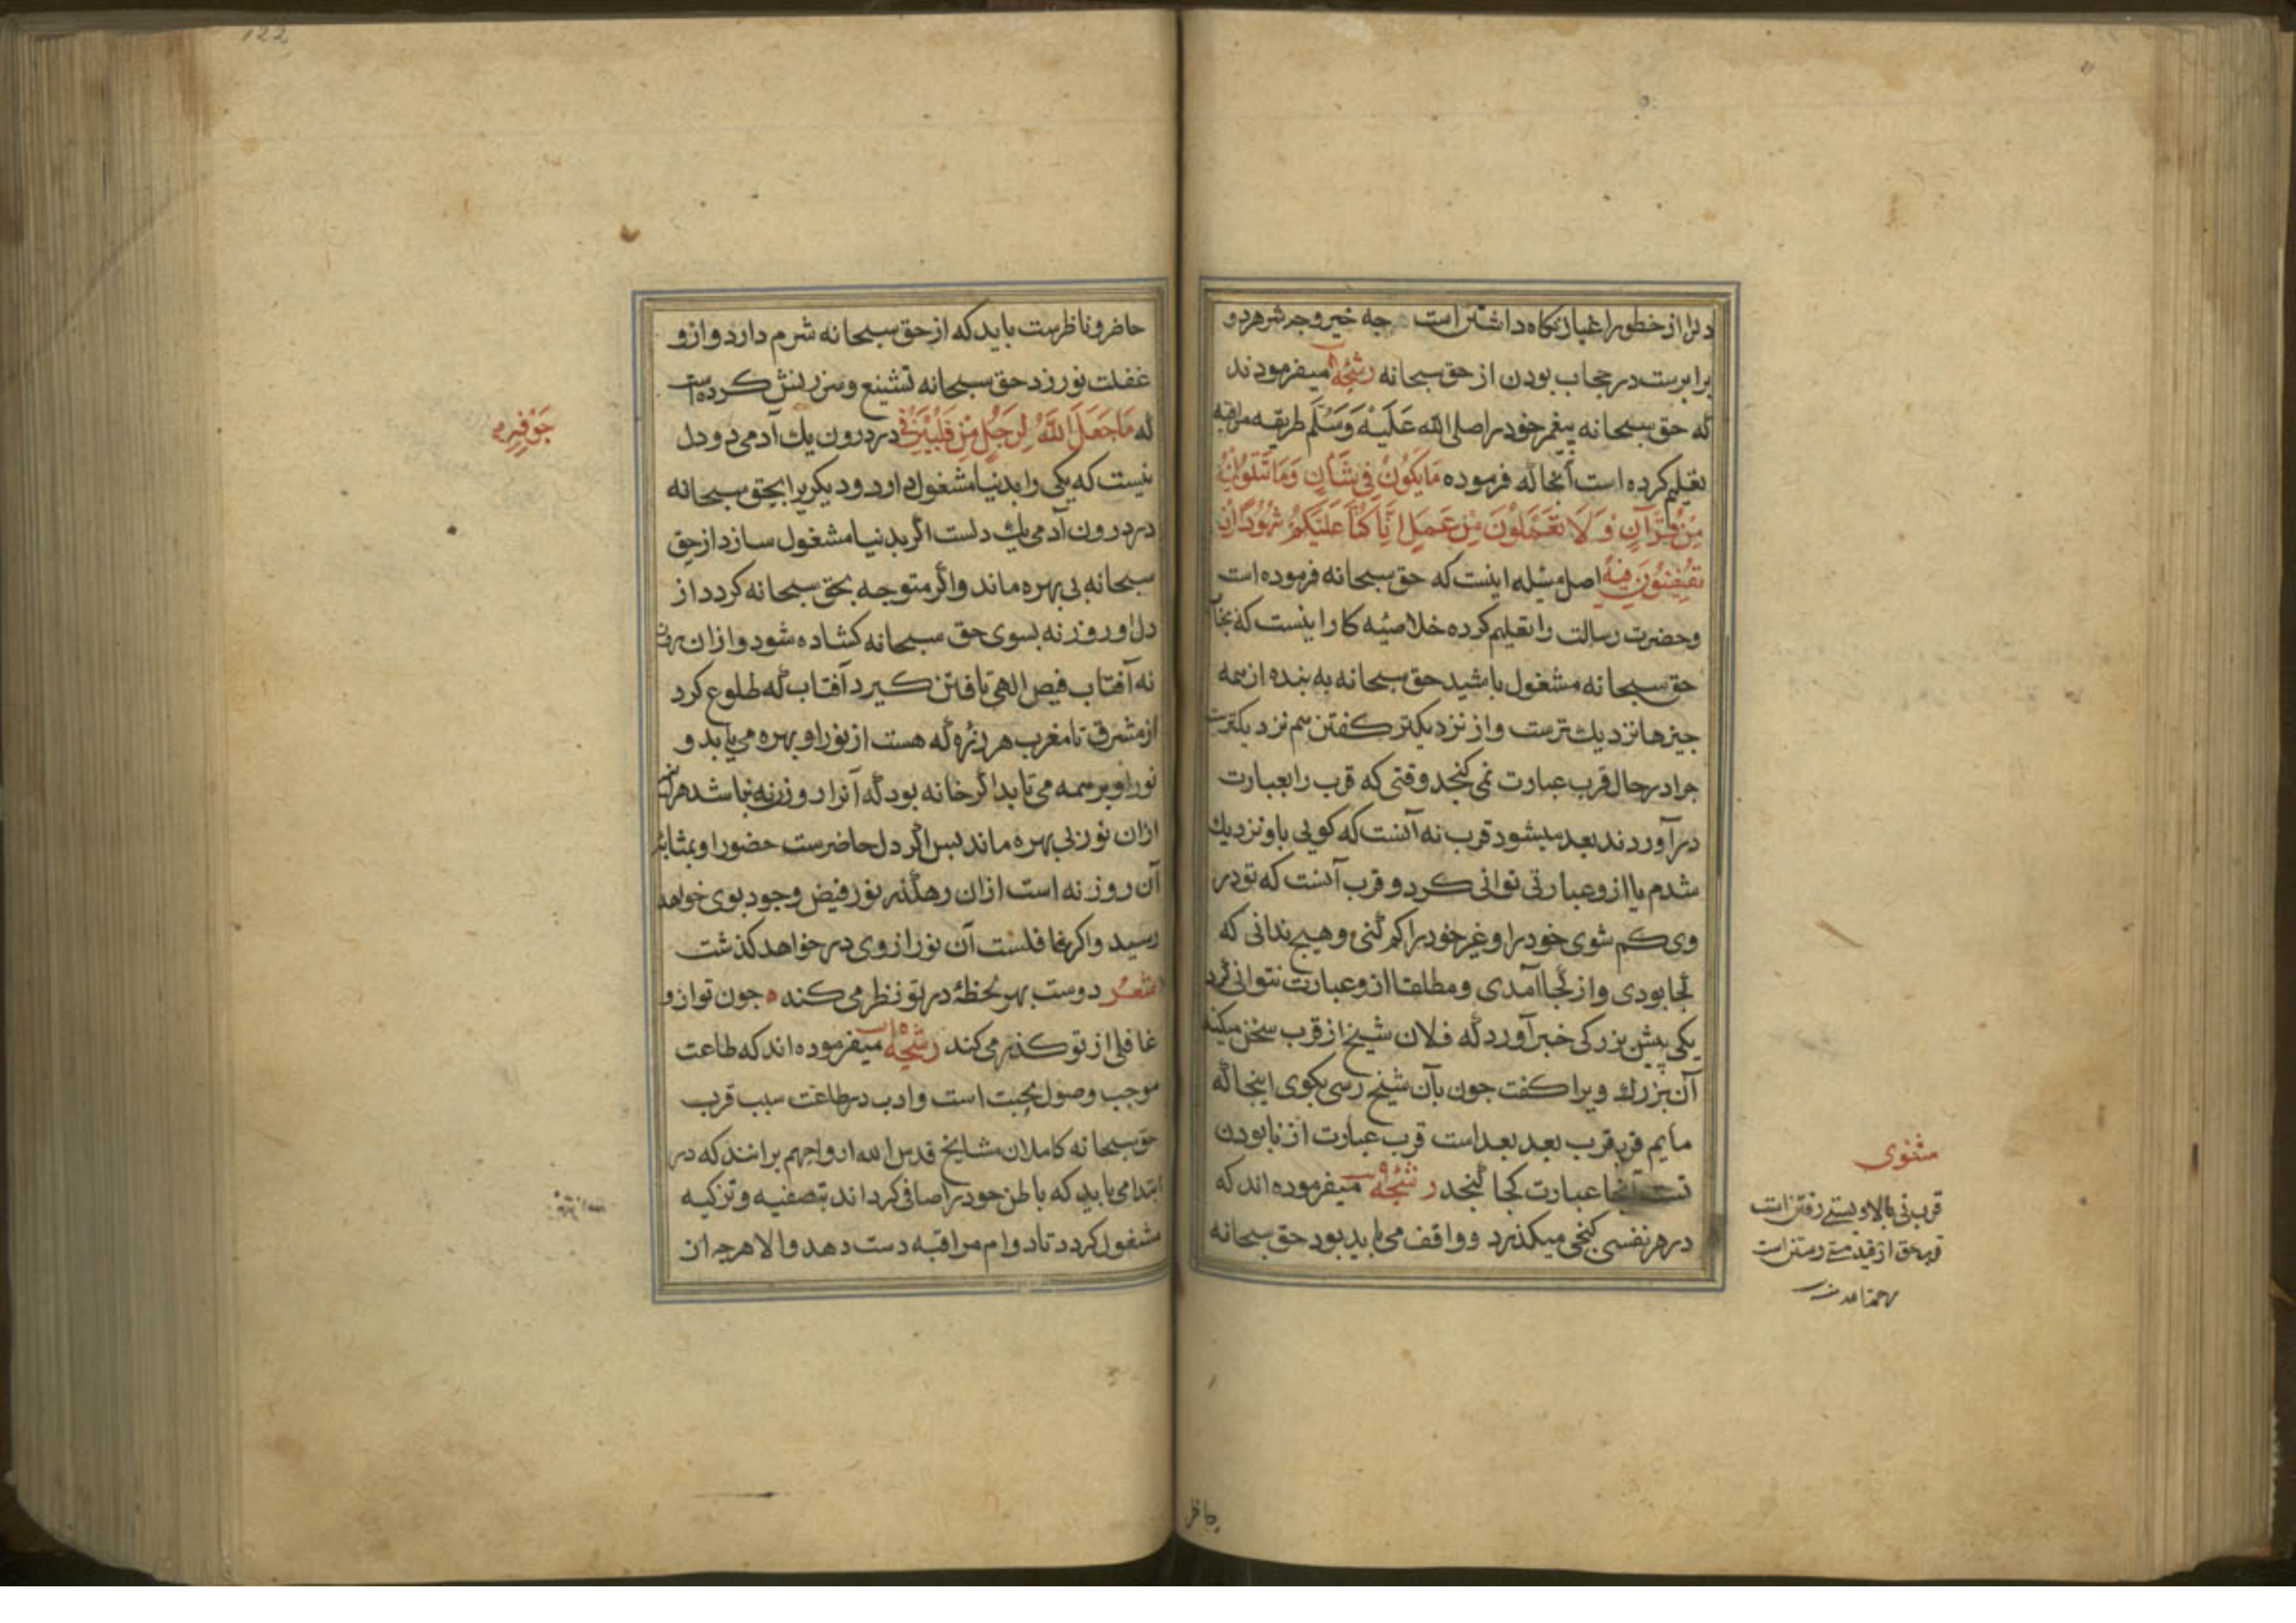 دلرا از خطور اغیار نکاه داشتن است جه خیر و جه شر هر دو
برابرست در حجاب بودن از حق سبحانه رشحه میفرمودند
که حق سبحانه پیغمبر خود را صلی الله عَلَیْهِ وَسَلَّم طریقه مراقبه
تعلیم کرده است آنجا که فرموده مَا یَکُونُ فِی شَأنٍ وَمَا تَتْلُو مِنْهُ
مِنْ قُرْآنٍ وَلَا تَعْمَلُونَ مِنْ عَمَلٍ اِلَّا کُنَّا عَلَیْکُمْ شُهُودًا اِذْ
تُفِیضُونَ فِیهِ اصل مسئله اینست که حق سبحانه فرموده است
وحضرت رسالت را تعلیم کرده خلاصهٔ کار اینست که بجناب
حق سبحانه مشغول باشید حق سبحانه به بنده از همه
جیزها نزدیك ترست و از نزدیکتر کفتن هم نزدیکترست
جرا در حال قرب عبارت نمی کنجد وقتی که قرب را بعبارت
در آوردند بعد میشود قرب نه آنست که کویی باو نزدیك
شدم یا ازو عبارتی توانی کرد و قرب آنست که تو در
وی کم شوی خود را و غیر خود را کم کنی و هیج ندانی که
کجا بودی و از کجا آمدی و مطلقا ازو عبارت نتوانی کرد
یکی پیش بزرکی خبر آورد که فلان شیخ از قرب سخن میکند
آن بزرك ویرا کفت جون بآن شیخ رسی بکوی اینجا که
مایم قرب قرب بعد بعد است قرب عبارت از نابودن
تست آنجا عبارت کجا کنجد رشحه میفرموده اند که
در هر نفسی کنجی میکذرد و واقف می باید بود حق سبحانه
مثنوی
قرب نی بالا و پستی رفتن است
قرب حق از قید هستی رستن است
حاظر
122
حاضر و ناظرست باید که از حق سبحانه شرم دارد و ازو
غفلت نورزد حق سبحانه تشنیع و سرزنش کرده است
که مَا جَعَلَ اللّٰهُ لِرَجُلٍ مِنْ قَلْبَیْنِ فِی در درون یك آدمی دو دل
نیست که یکی را بدنیا مشغول دارد و دیکریرا بحق سبحانه
در درون آدمی یك دلست اکر بدنیا مشغول سازد از حق
سبحانه بی بهره ماند و اکر متوجه بحق سبحانه کردد از
دل او روزنه بسوی حق سبحانه کشاده شود و ازان روز
نه آفتاب فیض الهی تافتن کیرد آفتاب که طلوع کرد
از مشرق تا مغرب هر ذره که هست از نور او بهره می یابد و
نور او بر همه می تابد اکر خانه بود که آنرا روزنه نباشد هراینه
ازان نور بی بهره ماند پس اکر دل حاضرست حضور او بمثابهٔ
آن روزنه است ازان رهکذر نور فیض وجود بوی خواهد
رسید و اکر غافلست آن نور از وی در خواهد کذشت
شعر دوست بهر لحظهٔ در تو نظر می کند جون تو ازو
غافلی از تو کذر می کند رشحه میفرموده اند که طاعت
موجب وصول بجنت است و ادب در طاعت سبب قرب
حق سبحانه کاملان مشایخ قدس الله ارواحهم برانند که در
ابتدا می باید که باطن خود را صافی کرداند بتصفیه و تزکیه
مشغول کردد تا دوام مراقبه دست دهد و الا هر جه ازان
جَوْفِهِ